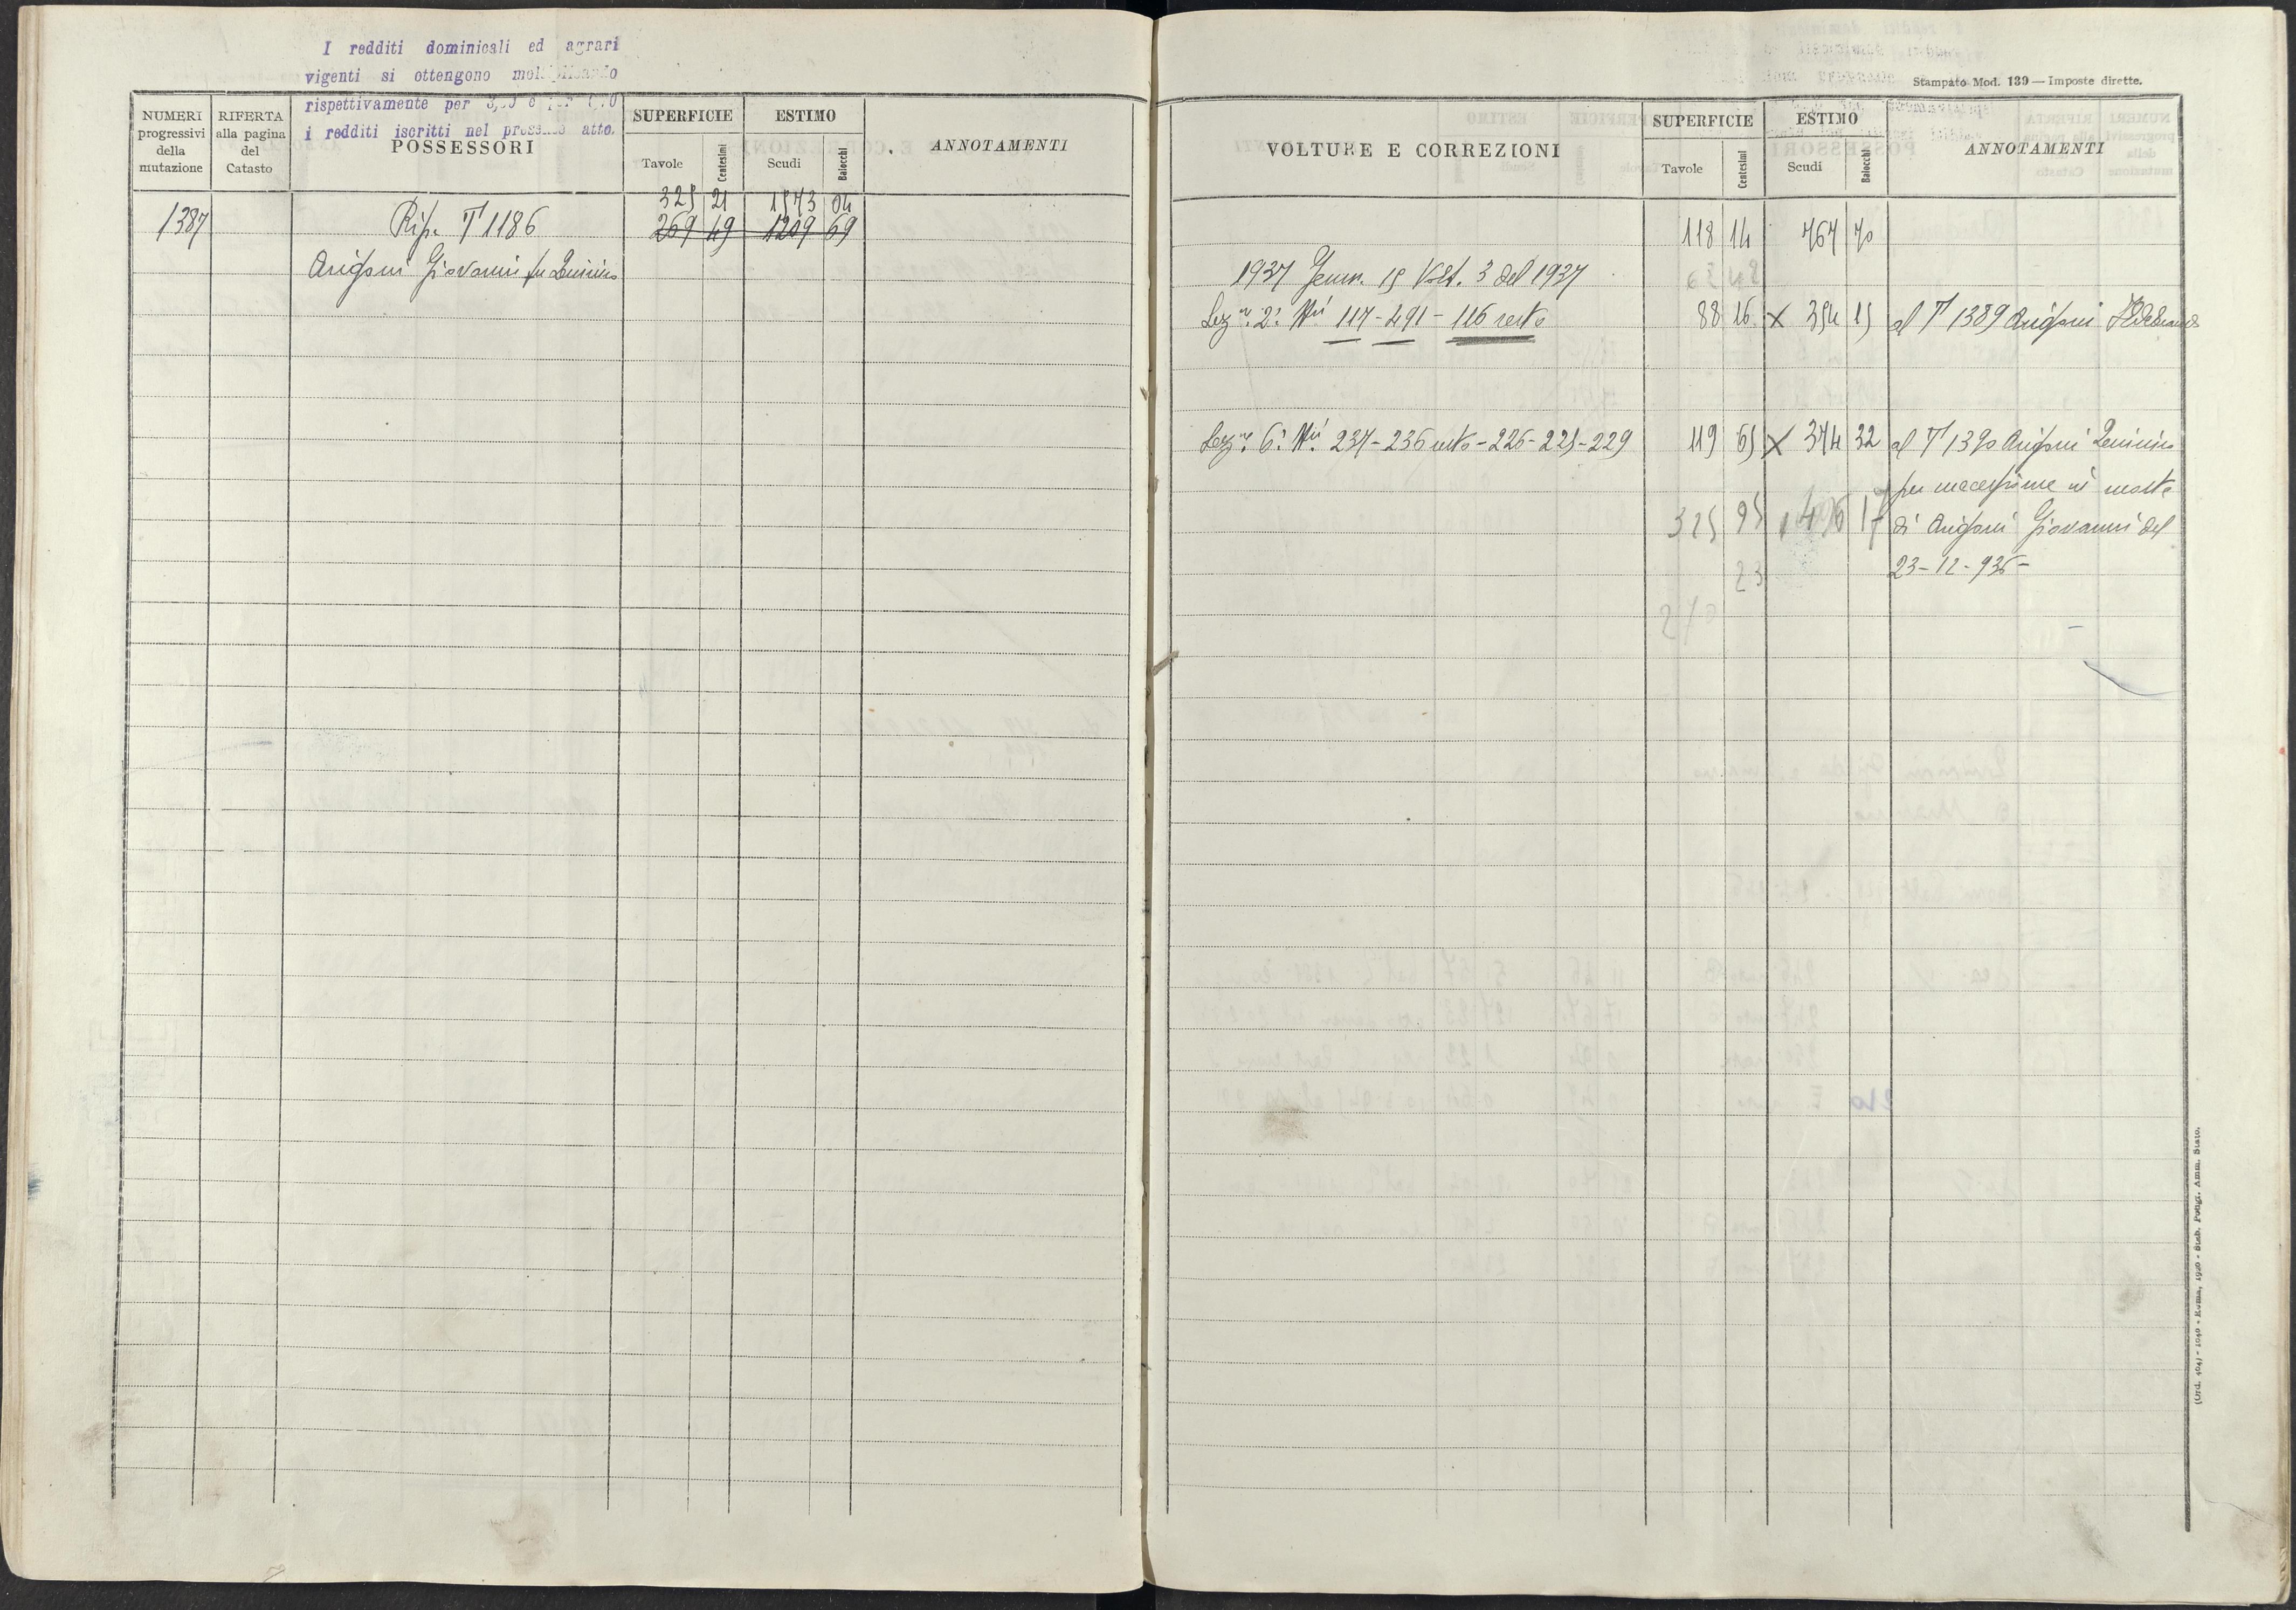 I redditi dominicali ed agrari
vigenti si ottengono moltiplicando
rispettivamente per
i redditi iscritti nel presente atto.
NUMERI progressivi della mutazione
RIFERTA alla pagina del Catasto
POSSESSORI
SUPERFICIE
Tavole Centesimi
ESTIMO
Scudi Baiocchi
ANNOTAMENTI
325 21 1573 04
1387 Rip. T 1186 269 49 1209 69
Arigoni Giovanni fu
Stampato Mod. 139 — Imposte dirette.
VOLTURE E CORREZIONI
SUPERFICIE
Tavole Centesimi
ESTIMO
Scudi Baiocchi
ANNOTAMENTI
118 14 767 70
1937 Genn. 15 Volt. 3 del 1937
Sez.ne 2ª Nri 117 - 491 - 116 resto 88 16 X 354 15 al T 1389 Arigoni
Sez.ne 6ª Nri 237 - 236 resto - 226 - 225 - 229 119 65 X 374 32 al T 1390 Arigoni
per successione in morte
325 95 17 di Arigoni Giovanni del
23 23-12-936-
(Ord. 404) - 1040 - Roma, 1920 - Stab. Poligr. Amm. Stato.